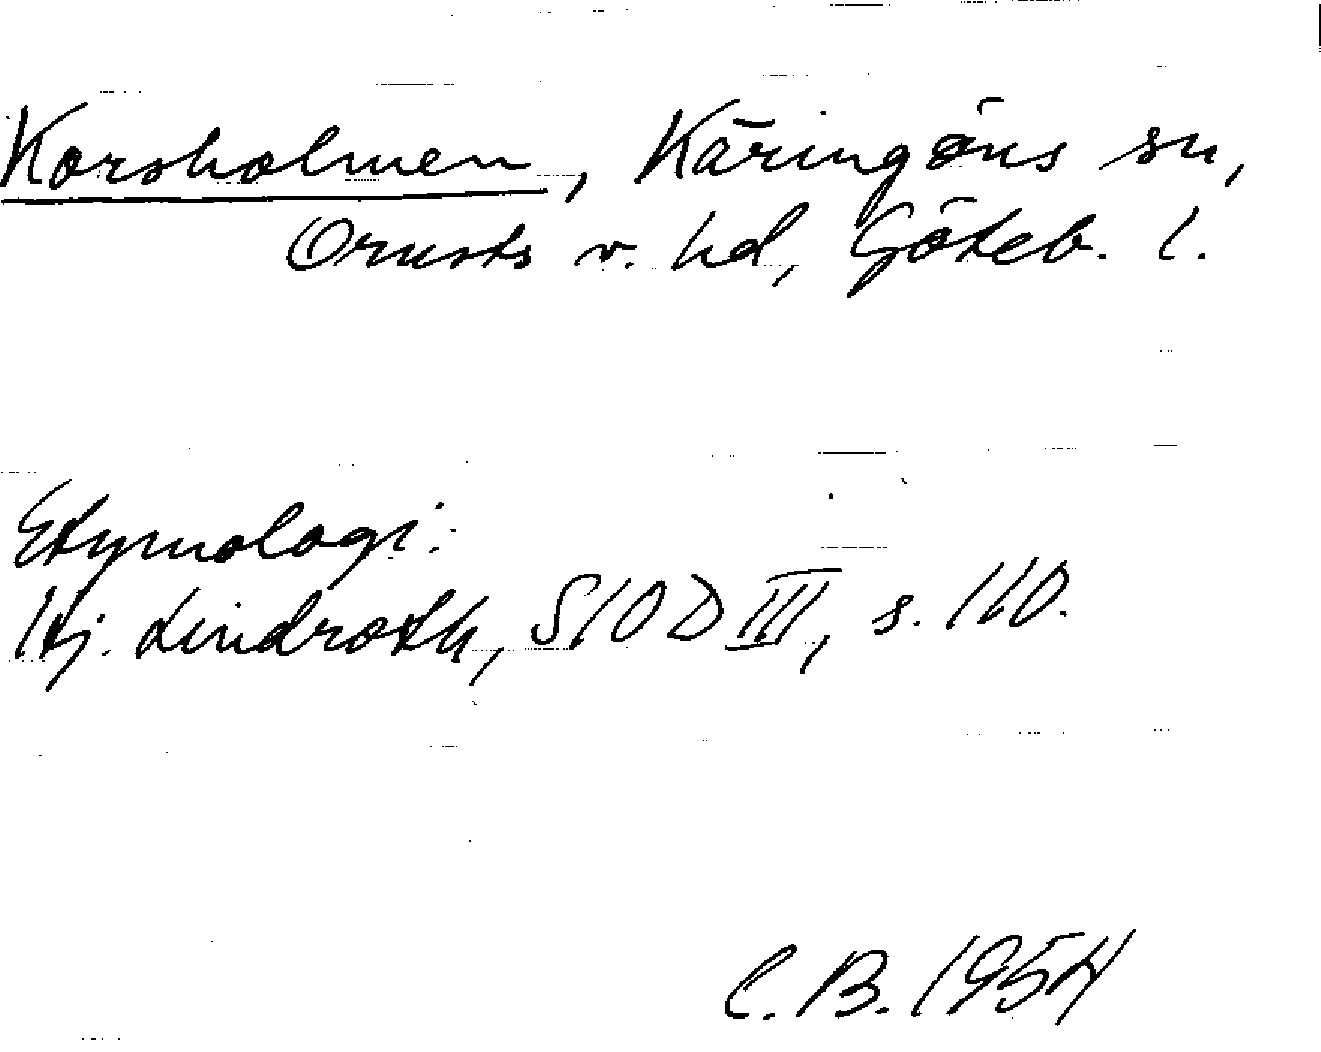 Korsholmen, Käringöns sn,
Orusts v. hd, Göteb. l.
Etymologi:
Hj. Lindroth, SIOD III, s. 110.
C.B. 1954